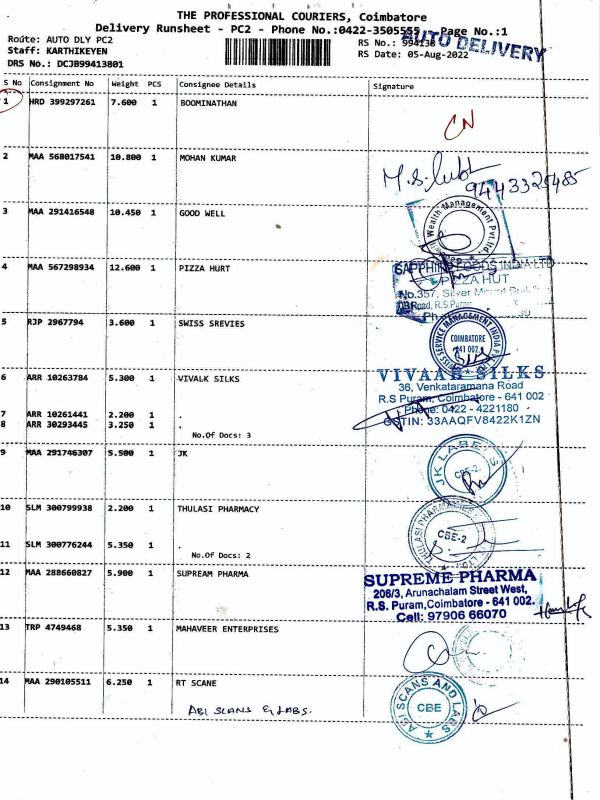 THE PROFESSIONAL COURIERS, Coimbatore
Delivery Runsheet - PC2 - Phone No.:0422-3505555 Page No.:1
Route: AUTO DLY PC2
RS No.: 994138
AUTO DELIVERY
Staff: KARTHIKEYEN
RS Date: 05-Aug-2022
DRS No.: DCJB99413801
S No Consignment No Weight PCS Consignee Details Signature
1 HRD 399297261 7.600 1 BOOMINATHAN
CN
2 MAA 568017541 10.800 1 MOHAN KUMAR
9443325485
3 MAA 291416548 10.450 1 GOOD WELL
Wealth Management Pvt.Ltd
4 MAA 567298934 12.600 1 PIZZA HURT
SAPPHIRE FOODS INDIA LTD
PIZZA HUT
No.357, Silver
Road, R.S.Puram
Ph
5 RJP 2967794 3.600 1 SWISS SREVIES
SERVICE MANAGEMENT INDIA
COIMBATORE
641 002
6 ARR 10263784 5.300 1 VIVALK SILKS
VIVAAH SILKS
36, Venkataramana Road
R.S Puram, Coimbatore - 641 002
Phone: 0422 - 4221180
GSTIN: 33AAQFV8422K1ZN
7 ARR 10261441 2.200 1 .
8 ARR 30293445 3.250 1 .
No.Of Docs: 3
9 MAA 291746307 5.500 1 JK
JK LABEL
CBE-2
10 SLM 300799938 2.200 1 THULASI PHARMACY
THULASI PHARMACIES
CBE-2
11 SLM 300776244 5.350 1 .
No.Of Docs: 2
12 MAA 288660827 5.900 1 SUPREAM PHARMA
SUPREME PHARMA
206/3, Arunachalam Street West,
R.S. Puram, Coimbatore - 641 002.
Cell: 97906 66070
13 TRP 4749468 5.350 1 MAHAVEER ENTERPRISES
14 MAA 290105511 6.250 1 RT SCANE
ABI SCANS & LABS.
ABI SCANS AND LABS
CBE